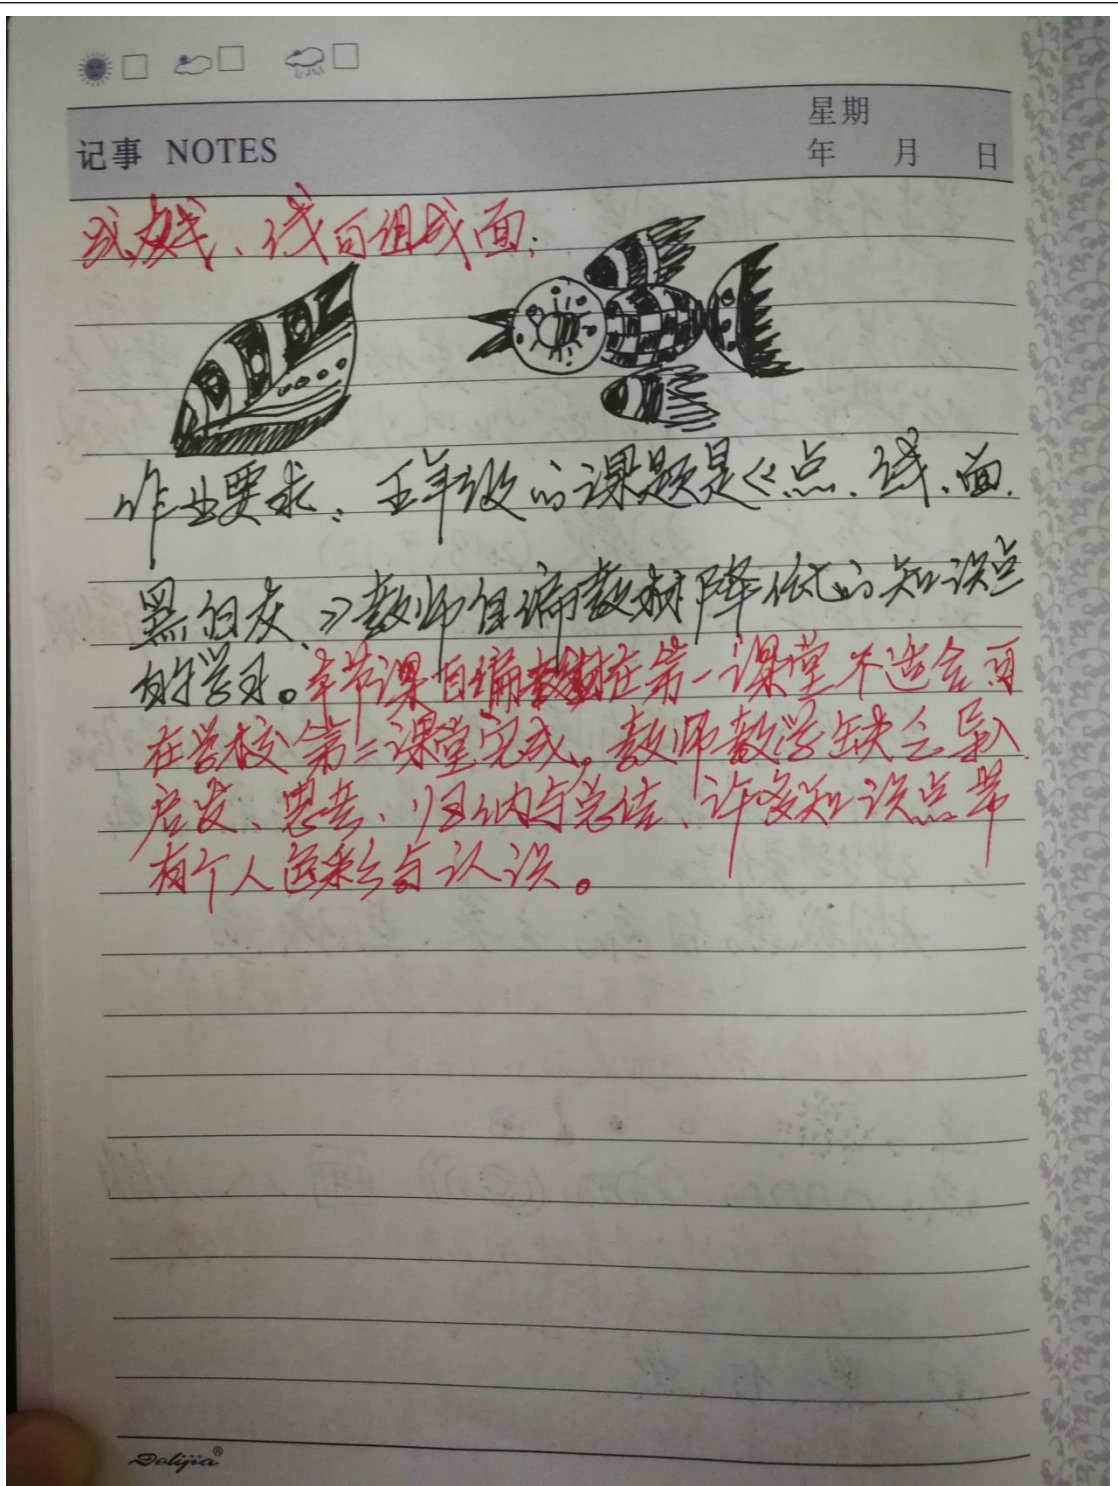 星期
记事 NOTES 年 月 日
成线、线可组成面;
作业要求:五年级的课题是《点、线、面.
黑白灰》教师自编教材降低的知识点
的学习。本节课自编教材在第一课堂不适合可
在学校第二课堂完成。教师教学缺乏导入
启发、思考、归纳与总结、许多知识点带
有个人色彩与认识。
Delijia®